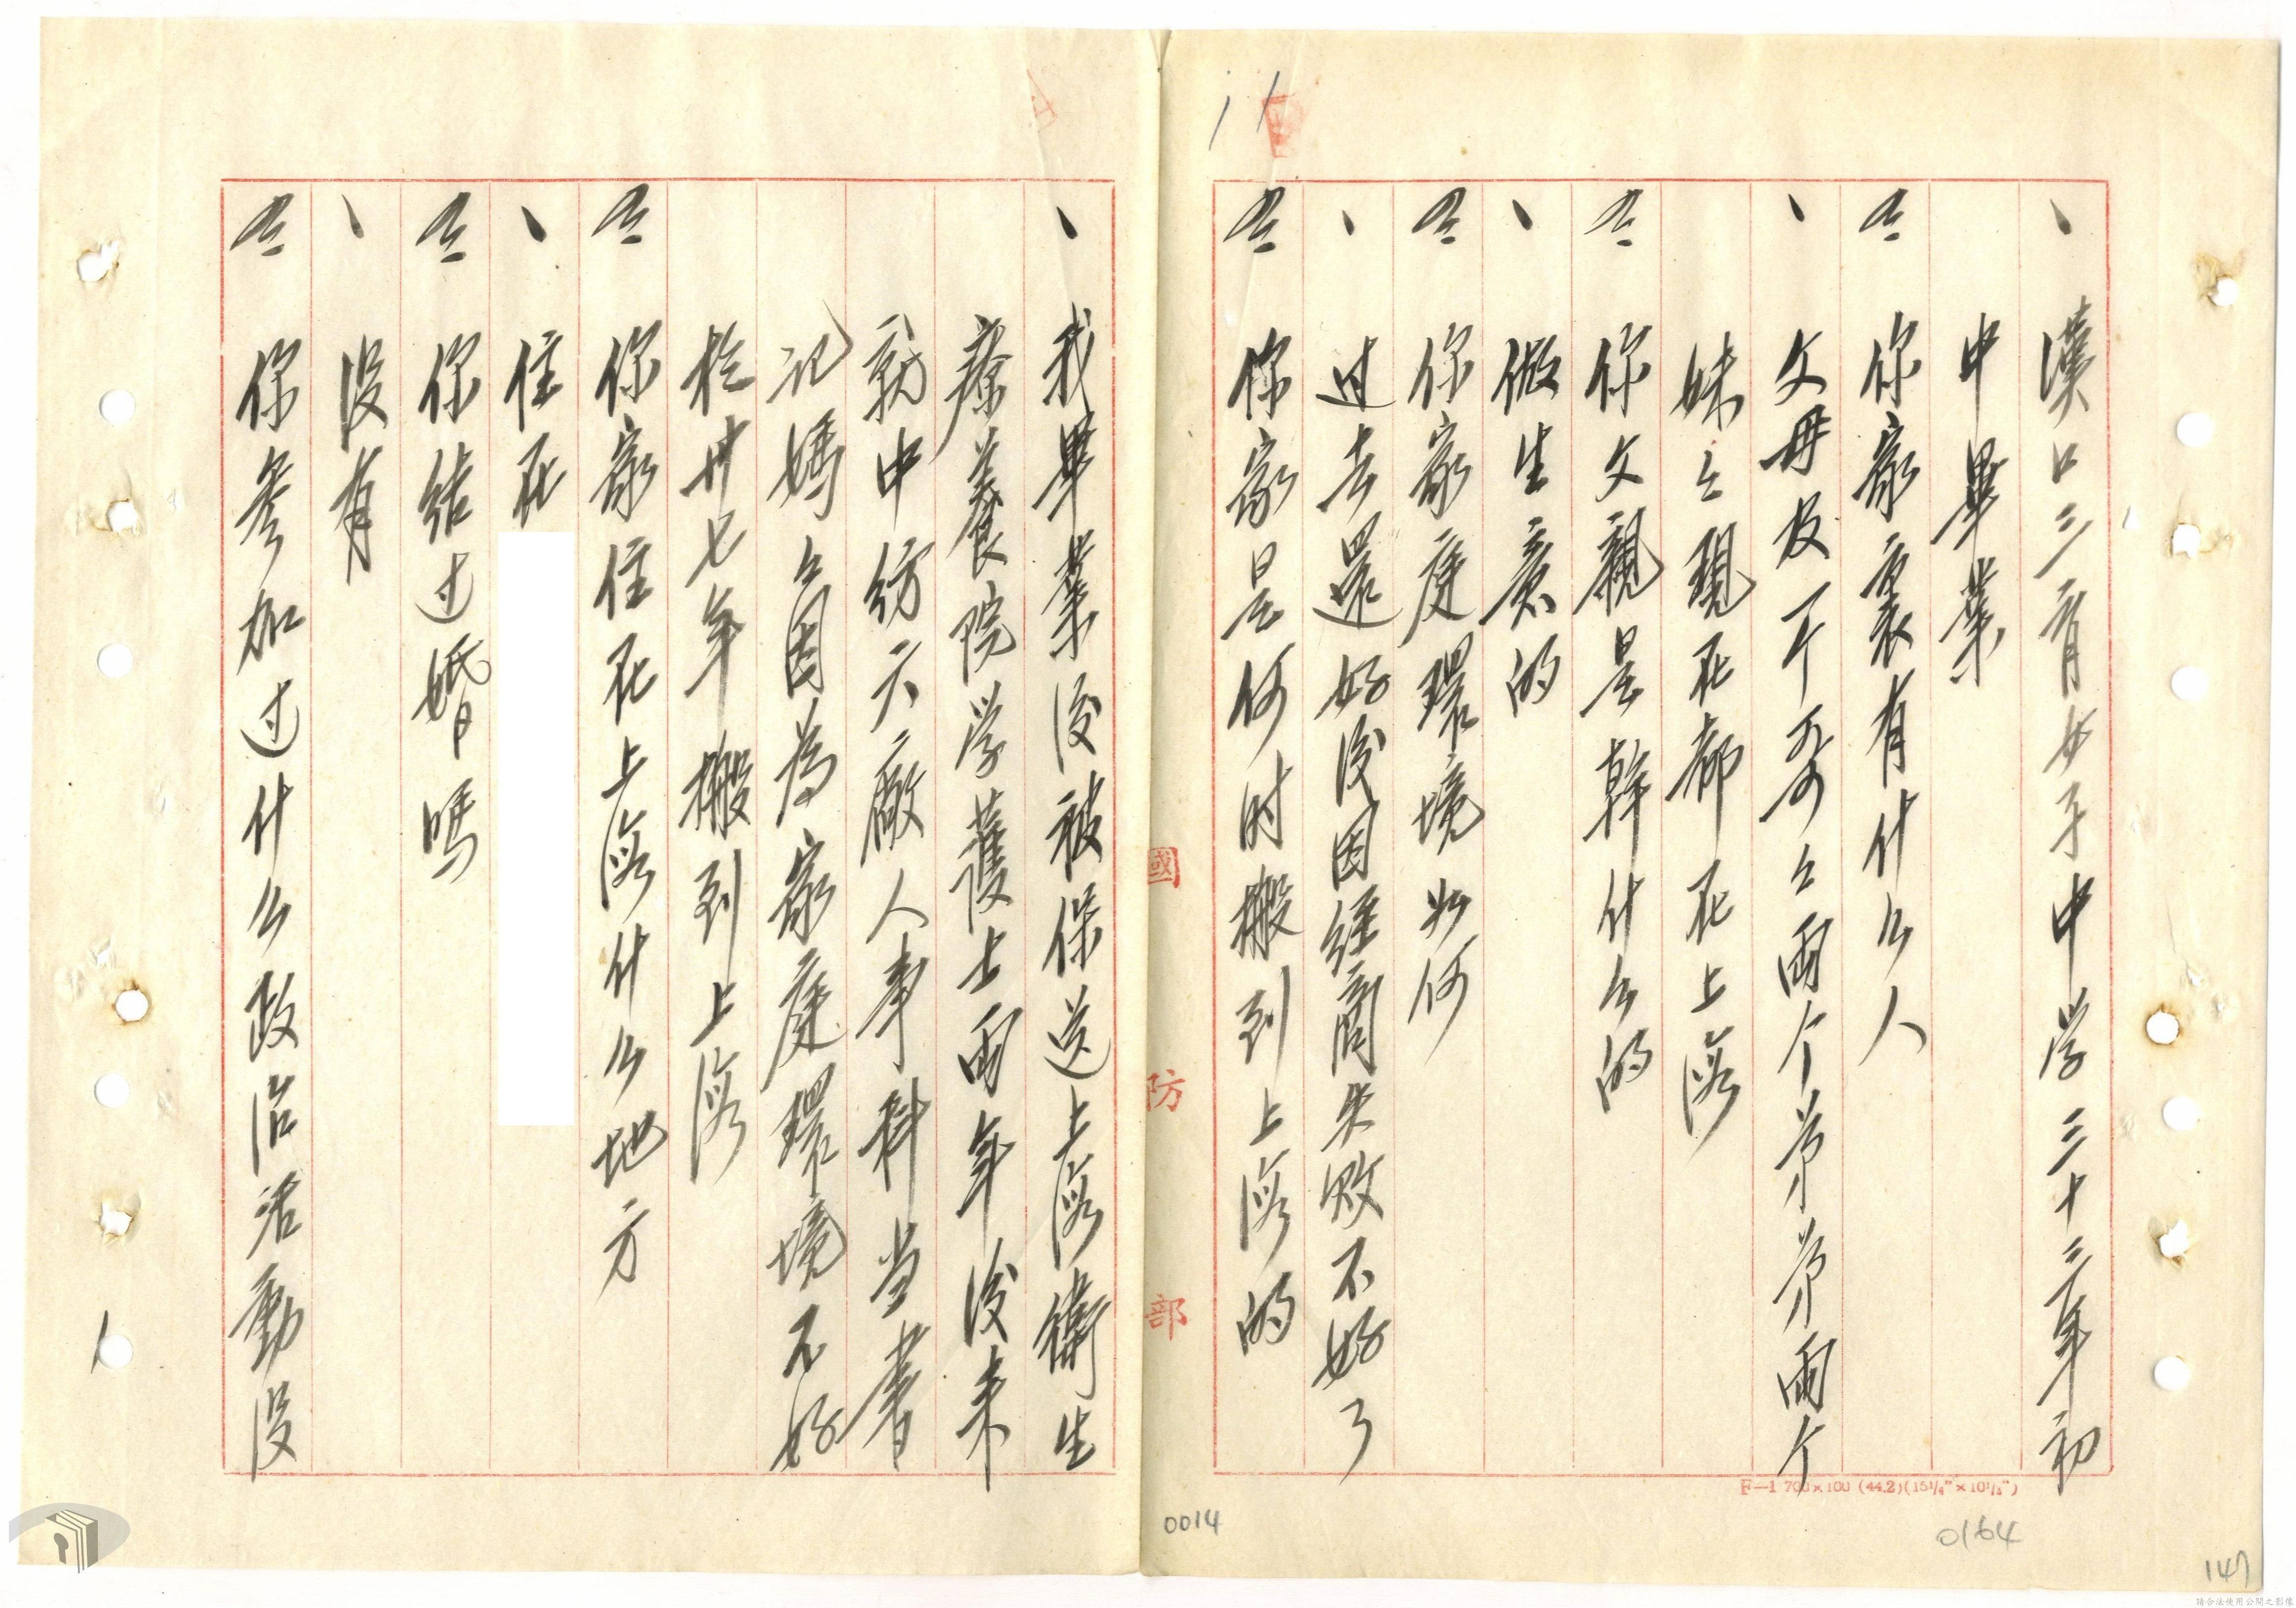 、漢口三育女子中学三十三年初
中畢業
你家裏有什么人
、父母及一个哥么两个弟弟两个
妹么現在都在上海
你父親是幹什么的
、做生意的
你家庭環境如何
、过去還好後因経商失敗不好了
你家是何时搬到上海的
、我畢業後被保送上海衛生
療養院学護士两年後来
就中紡六廠人事科当書
記媽么因為家庭環境不好
於卅七年搬到上海
你家住在上海什么地方
、住在
你结过婚嗎
、没有
你参加过什么政治活動没
國防部
F—1 700×100 (44.2)(15¼"×10½")
0014
0164
147
請合法使用公開之影像